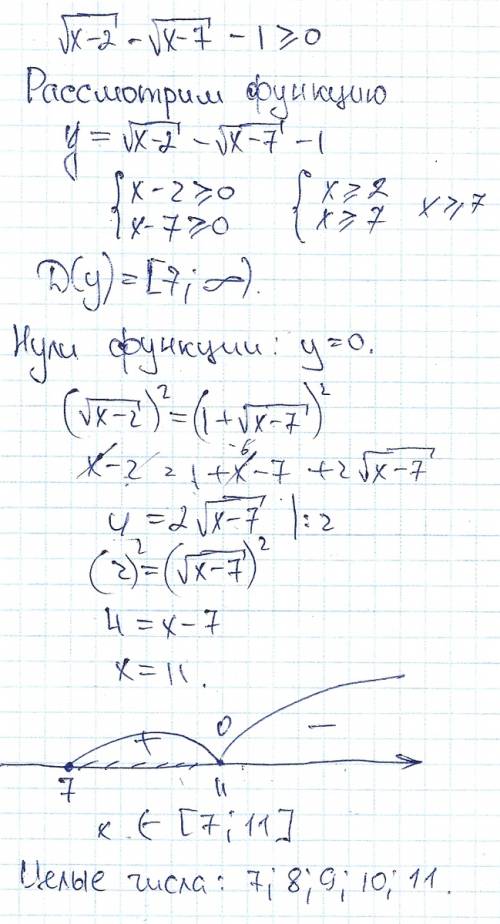 √x-2 - √x-7 - 1 ≥ 0
Рассмотрим функцию
y = √x-2 - √x-7 - 1
{x - 2 ≥ 0 {x ≥ 2 x ≥ 7
{x - 7 ≥ 0 {x ≥ 7
D(y) = [7; ∞).
Нули функции: y = 0.
(√x-2)² = (1 + √x-7)²
-6
x - 2 = 1 + x - 7 + 2√x-7
4 = 2√x-7 |: 2
(2)² = (√x-7)²
4 = x - 7
x = 11.
+ 0 −
7 11
x ∈ [7; 11]
Целые числа: 7; 8; 9; 10; 11.